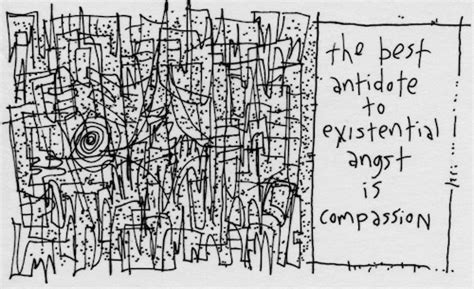 the best
antidote
to
existential
angst
is
compassion